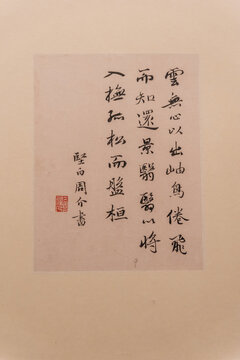 雲無心以出岫鳥倦飛
而知還景翳翳以將
入撫孤松而盤桓
堅白周介書